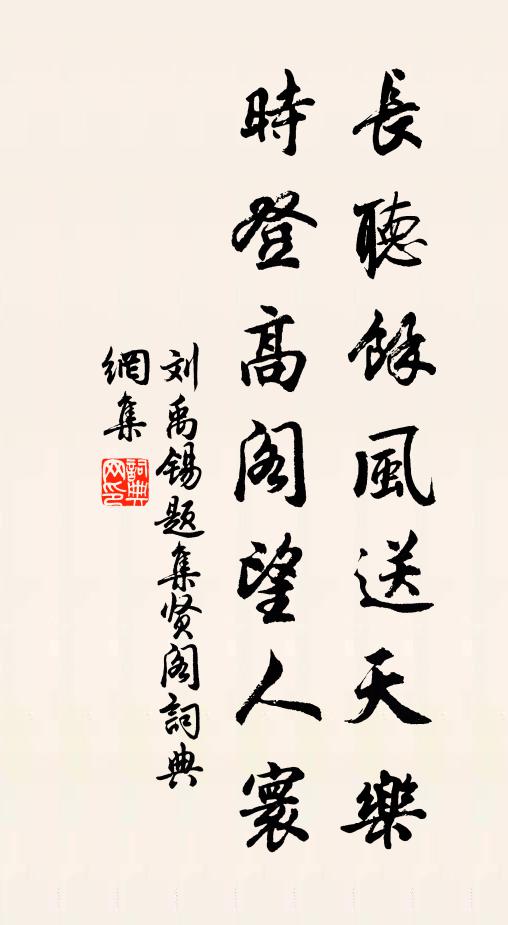 長聽餘風送天樂
時登高阁望人寰
刘禹锡题集贤阁詞典
網集
詞典网印